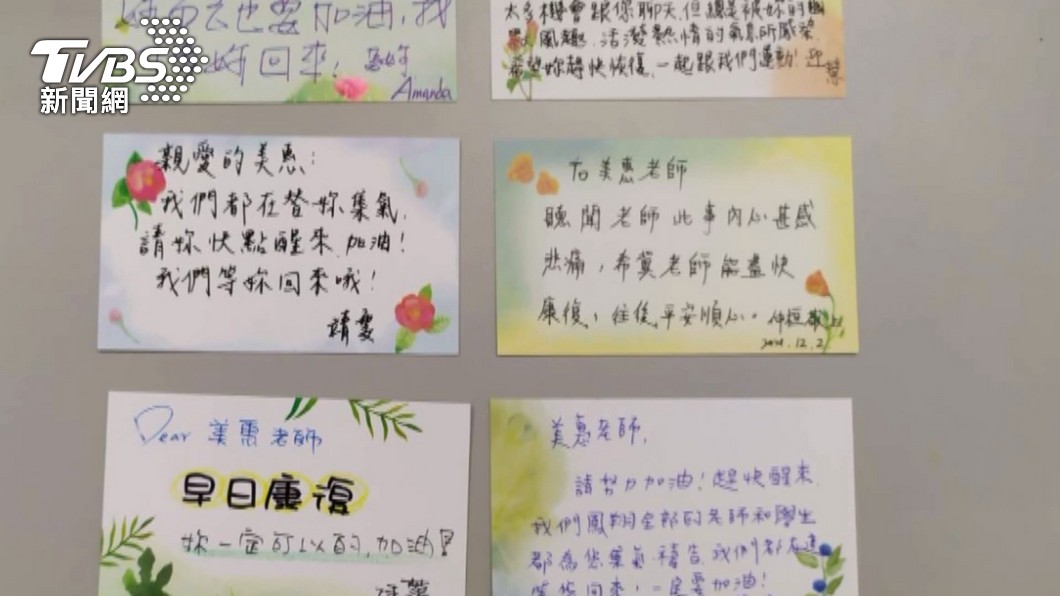 TVBS
新聞網
也要加油,我
回來!
Amanda
太多機會跟你聊天,但總是被妳的幽
風趣、活潑熱情的氣息所感染
希望妳趕快恢復,一起跟我們運動!
親愛的美惠:
我們都在替妳集氣,
請妳快點醒來,加油!
我們等妳回來哦!
靖雯
To美惠老師
聽聞老師此事內心甚感
悲痛,希冀老師能盡快
康復,往後平安順心。
2021.12.2
Dear 美惠老師
早日康復
妳一定可以的,加油!
美惠老師,
請努力加油!趕快醒來,
我們鳳翔全部的老師和學生
都為您集氣禱告,我們都在這
等您回來,一定要加油!